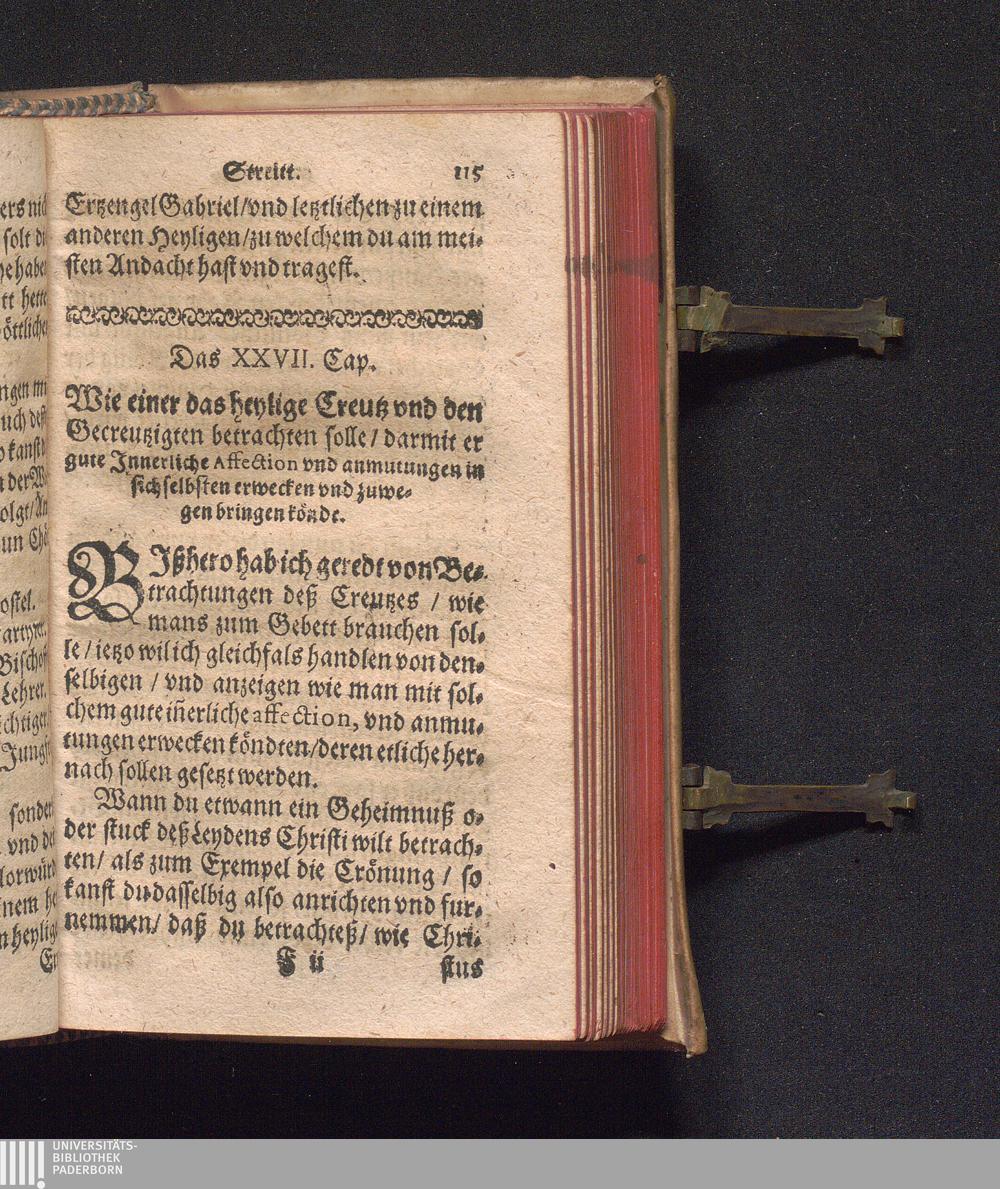 Streitt. 115
Ertzengel Gabriel/vnd letztlichen zu einem
anderen Heyligen/zu welchem du am mei-
sten Andacht hast vnd tragest.
Das XXVII. Cap.
Wie einer das heylige Creutz vnd den
Gecreutzigten betrachten solle/ darmit er
gute Jnnerliche Affection vnd anmutungen in
sich selbsten erwecken vnd zuwe-
gen bringen köndt.
BJßhero hab ich geredt von Be-
trachtungen deß Creutzes / wie
mans zum Gebett brauchen sol-
le / ietzo wil ich gleichfals handlen von den-
selbigen / vnd anzeigen wie man mit sol-
chem gute iñerliche affection, vnd anmu-
tungen erwecken köndten/deren etliche her-
nach sollen gesetzt werden.
Wann du etwann ein Geheimnuß o-
der stuck deß Leydens Christi wilt betrach-
ten/ als zum Exempel die Crönung / so
kanst du dasselbig also anrichten vnd fur-
nemmen/ daß du betrachteß/ wie Chri-
J ii stus
ers
solt
tt hett
ostel.
Bischof
Lehrer.
sonder
vnd
UNIVERSITÄTS-
BIBLIOTHEK
PADERBORN